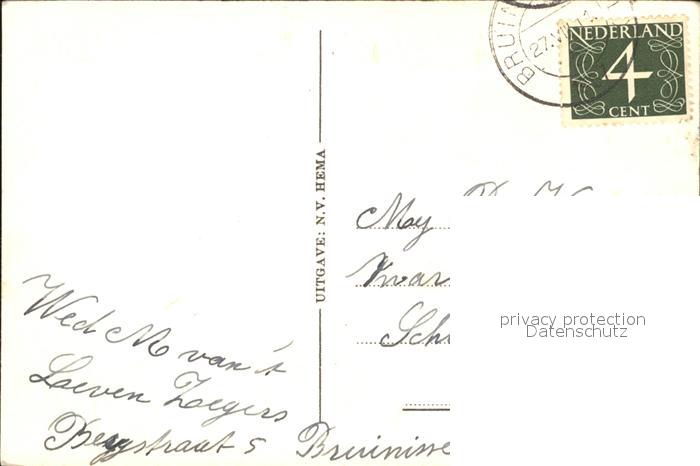 BRUIN
27.VII
NEDERLAND
4
CENT
UITGAVE: N.V. HEMA
Mej
Kwar
Sch
privacy protection
Datenschutz
Wed M van 't
Loeven Zoegers
Bergstraat 5 Bruinisse